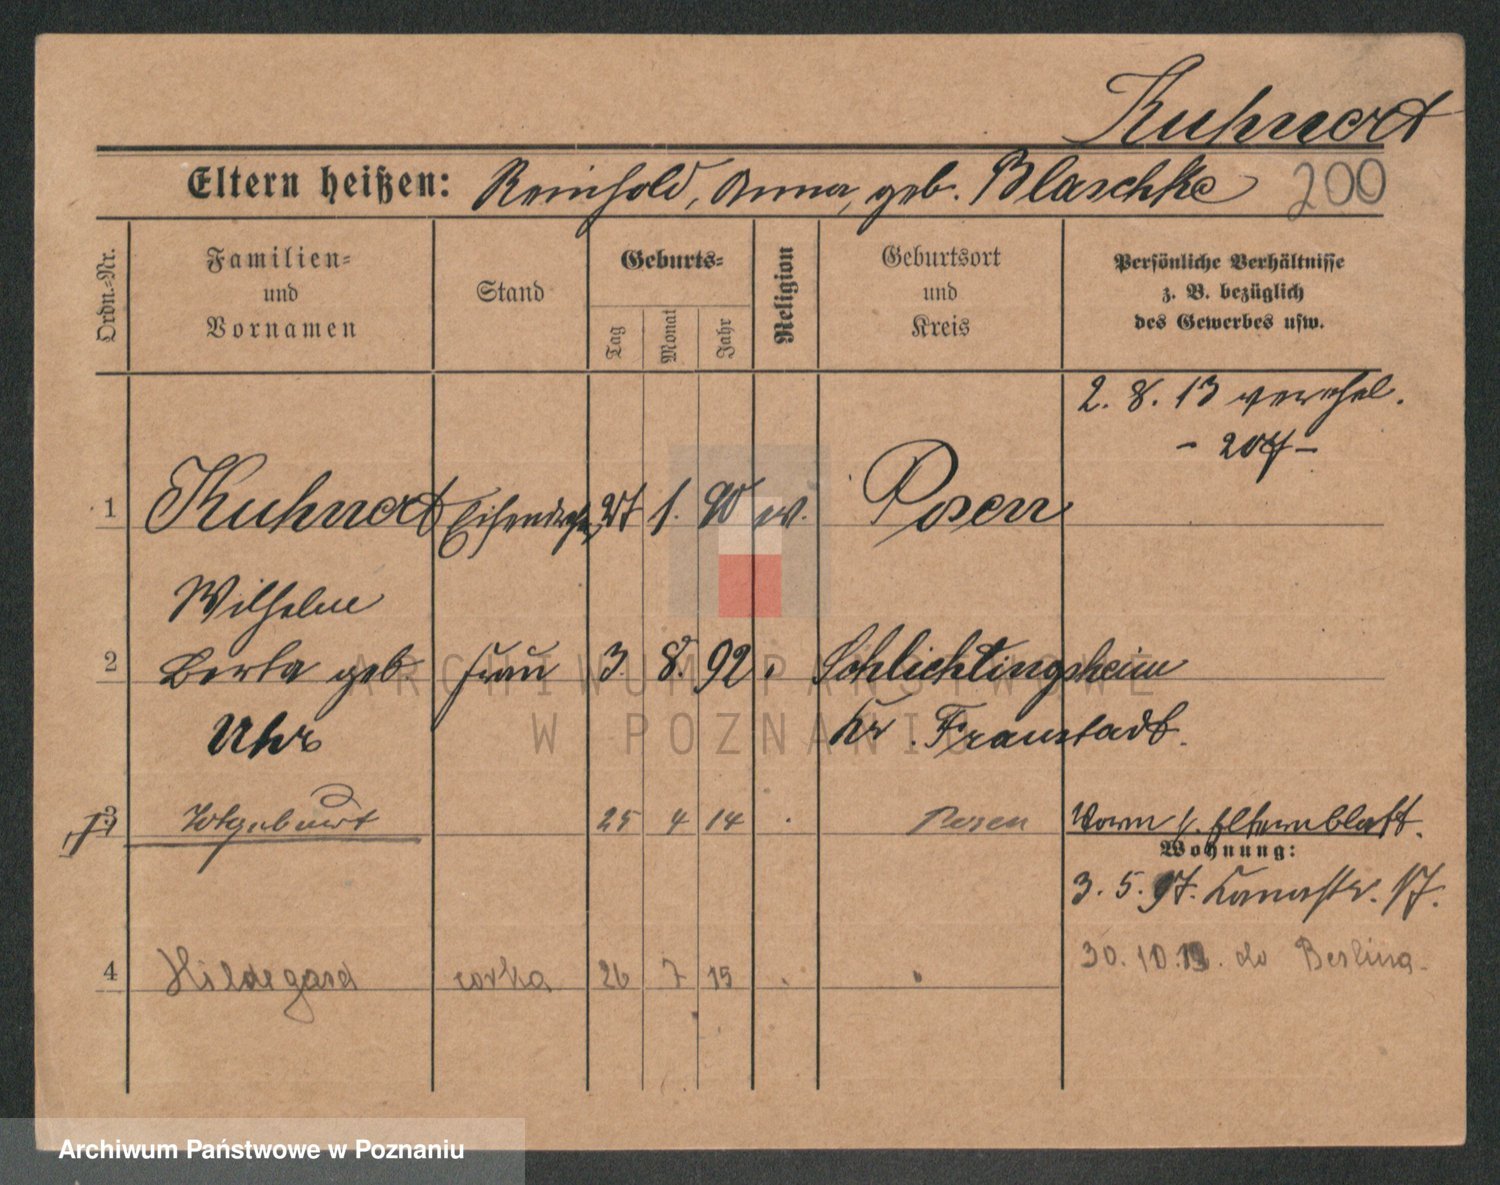 Kuhnert
Eltern heißen: Reinhold, Anna, geb. Blaschke 200
Ordn.-Nr.
Familien-
und
Vornamen
Stand
Geburts-
Tag
Monat
Jahr
Religion
Geburtsort
und
Kreis
Persönliche Verhältnisse
z. B. bezüglich
des Gewerbes usw.
2. 8. 13 verehel.
1 Kuhnert 1. 90 ev. Posen
Wilhelm
2 Berta geb Frau 3. 8. 92 Schlichtingsheim
Uhr Kr. Fraustadt.
3 Totgeburt 25 4 14 Posen Vorm s. Elternblatt.
Wohnung:
3. 5. 97. 17.
4 Hildegard corka 26 7 15
30. 10. do Berlina
ARCHIWUM PAŃSTWOWE
W POZNANIU
Archiwum Państwowe w Poznaniu